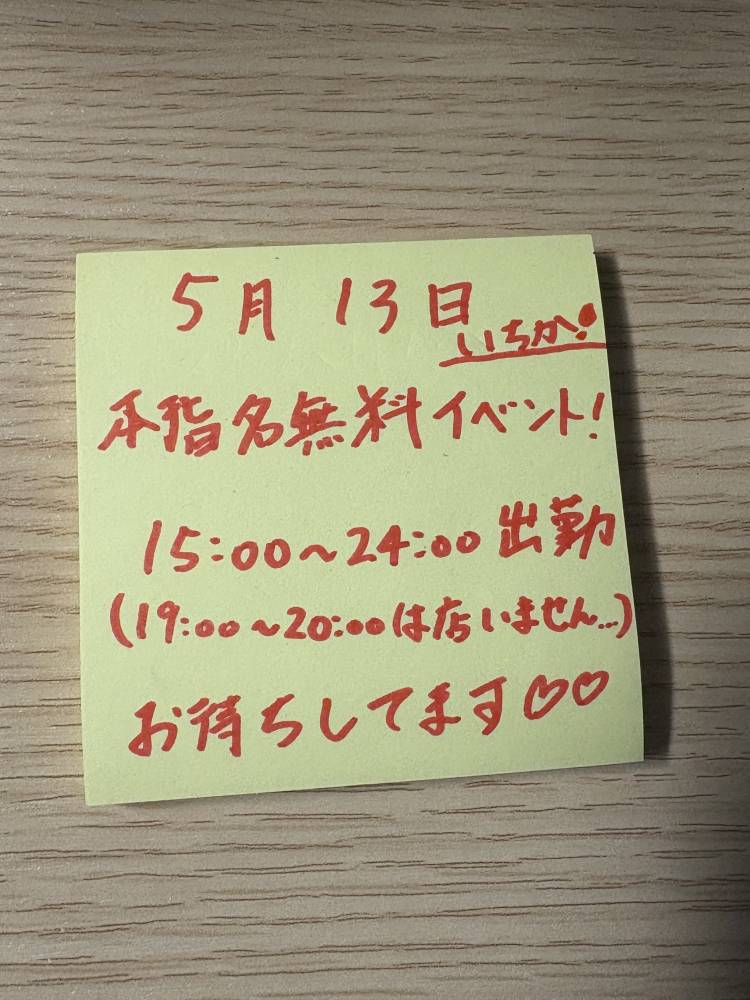 5月 13日
いちか!
本指名無料イベント!
15:00～24:00 出勤
(19:00～20:00は店いません...)
お待ちしてます♡♡